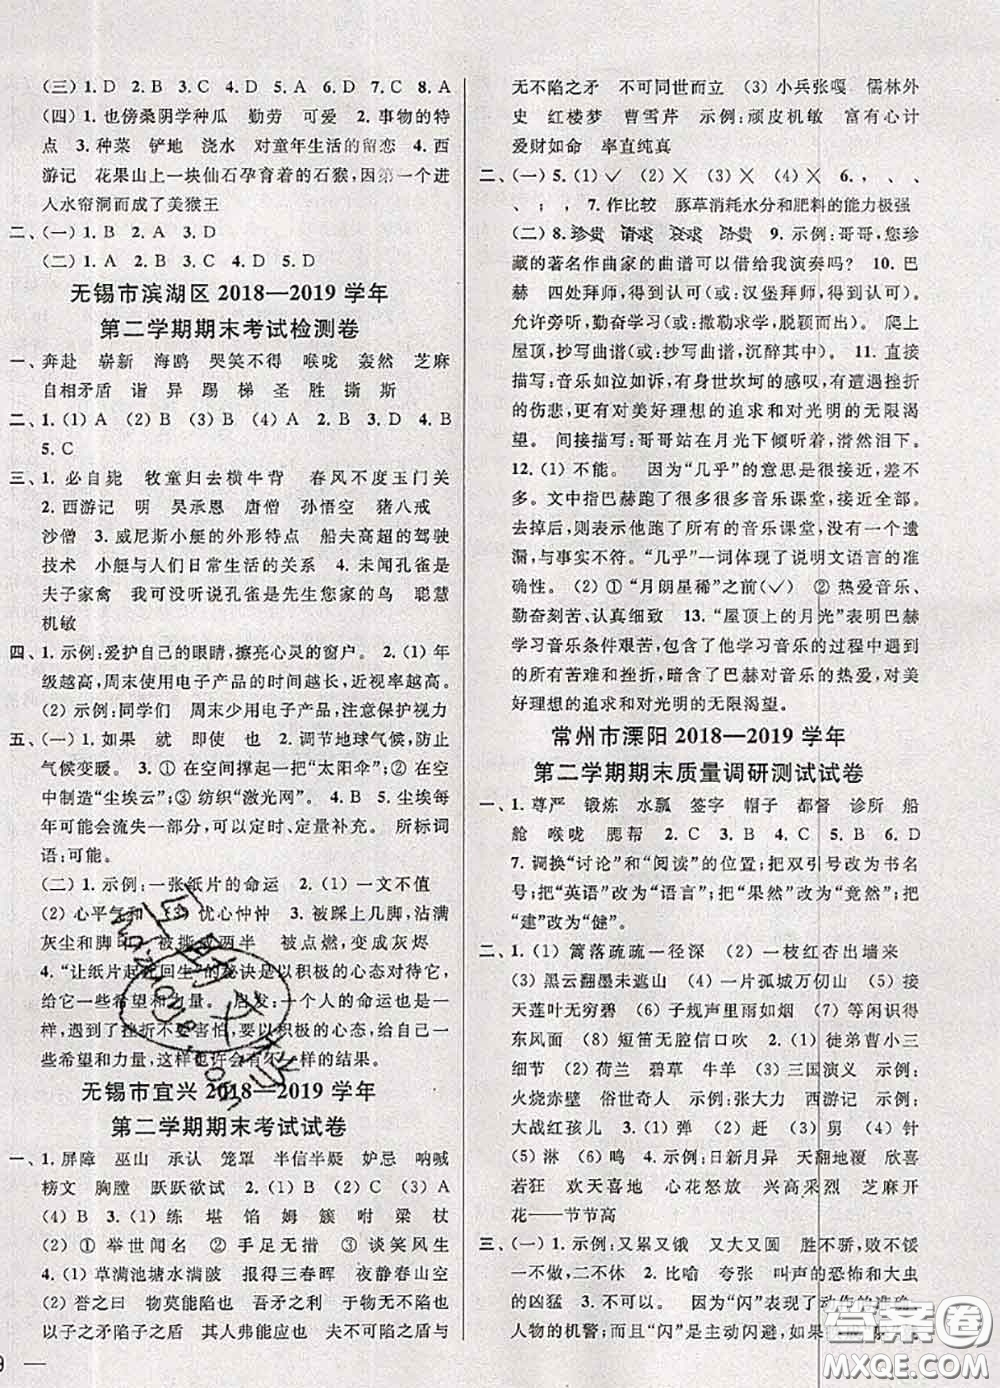 (三) 1. D 2. B 3. C 4. D 5. B 6. A 7. C 8. A
(四) 1. 也傍桑阴学种瓜 勤劳 可爱 2. 事物的特
点 3. 种菜 铲地 浇水 对童年生活的留恋 4. 西
游记 花果山上一块仙石孕育着的石猴,因第一个进
入水帘洞而成了美猴王
二、(一) 1. B 2. D 3. A 4. D
(二) 1. A 2. B 3. C 4. D 5. D
无锡市滨湖区 2018—2019 学年
第二学期期末考试检测卷
一、奔赴 崭新 海鸥 哭笑不得 喉咙 轰然 芝麻
自相矛盾 诣 异 踢 梯 圣 胜 撕 斯
二、1. (1) A (2) B (3) B (4) A 2. D 3. D 4. B
5. C
三、1. 必自毙 牧童归去横牛背 春风不度玉门关
2. 西游记 明 吴承恩 唐僧 孙悟空 猪八戒
沙僧 3. 威尼斯小艇的外形特点 船夫高超的驾驶
技术 小艇与人们日常生活的关系 4. 未闻孔雀是
夫子家禽 我可没听说孔雀是您家的鸟 聪慧
机敏
四、1. 示例:爱护自己的眼睛,擦亮心灵的窗户。 2. (1) 年
级越高,周末使用电子产品的时间越长,近视率越高。
(2) 示例:同学们 周末少用电子产品,注意保护视力
五、(一) 1. 如果 就 即使 也 2. 调节地球气候,防止
气候变暖。 3. ① 在空间撑起一把“太阳伞”;② 在空
中制造“尘埃云”;③ 纺织“激光网”。 4. B 5. 尘埃每
年可能会流失一部分,可以定时、定量补充。 所标词
语:可能。
(二) 1. 示例:一张纸片的命运 2. (1) 一文不值
(2) 心平气和 (3) 忧心忡忡 3. 被踩上几脚,沾满
灰尘和脚印 被撕成两半 被点燃,变成灰烬
4. “让纸片起死回生”的秘诀是以积极的心态对待它,
给它一些希望和力量。 启发:一个人的命运也是这
样,遇到了挫折不要害怕,要以积极的心态,给自己一
些希望和力量,这样也许会有不一样的结果。
无锡市宜兴 2018—2019 学年
第二学期期末考试试卷
一、1. 屏障 巫山 承认 笼罩 半信半疑 妒忌 呐喊
榜文 胸膛 跃跃欲试 2. (1) B (2) C (3) A
(4) B 3. (1) 练 堪 馅 姆 簇 咐 梁 杖
(2) ① 举世闻名 ② 手足无措 ③ 谈笑风生
4. (1) 草满池塘水满陂 报得三春晖 夜静春山空
(2) 誉之曰 物莫能陷也 吾矛之利 物无不陷也
以子之矛陷子之盾 其人弗能应也 夫不可陷之盾与
无不陷之矛 不可同世而立 (3) 小兵张嘎 儒林外
史 红楼梦 曹雪芹 示例:顽皮机敏 富有心计
爱财如命 率直纯真
二、(一) 5. (1) ✓ (2) ✕ (3) ✕ (4) ✕ 6. , ,
、 、 ; ; 7. 作比较 豚草消耗水分和肥料的能力极强
(二) 8. 珍贵 请求 哀求 昂贵 9. 示例:哥哥,您珍
藏的著名作曲家的曲谱可以借给我演奏吗? 10. 巴
赫 四处拜师,得到认可(或:汉堡拜师,得到认可)。
允许旁听,勤奋学习(或:撒勒求学,脱颖而出)。 爬上
屋顶,抄写曲谱(或:抄写曲谱,沉醉其中)。 11. 直接
描写:音乐如泣如诉,有身世坎坷的感叹,有遭受挫折
的伤悲,更有对美好理想的追求和对光明的无限渴
望。 间接描写:哥哥站在月光下聆听着,潸然泪下。
12. (1) 不能。 因为“几乎”的意思是很接近,差不
多。文中指巴赫跑了很多很多音乐课堂,接近全部。
去掉后,则表示他跑了所有的音乐课堂,一个也没有遗
漏,与事实不符。“几乎”一词体现了说明文语言的准
确性。 (2) ① “月朗星稀”之前(✓) ② 热爱音乐、
勤奋刻苦、认真细致 13. “屋顶上的月光”表明巴赫
学习音乐条件艰苦,包含了他学习音乐的过程中遇到
的所有苦难和挫折,暗含了巴赫对音乐的热爱,对美
好理想的追求和对光明的无限渴望。
常州市溧阳 2018—2019 学年
第二学期期末质量调研测试试卷
一、1. 尊严 锻炼 水瓢 签字 帽子 都督 诊所 船
舱 喉咙 腮帮 2. C 3. B 4. C 5. B 6. D
7. 调换“讨论”和“阅读”的位置;把双引号改为书名
号;把“英语”改为“语言”;把“果然”改为“竟然”;把
“建”改为“健”。
二、1. (1) 篱落疏疏一径深 (2) 一枝红杏出墙来
(3) 黑云翻墨未遮山 (4) 一片孤城万仞山 (5) 接
天莲叶无穷碧 (6) 子规声里雨如烟 (7) 等闲识得
东风面 (8) 短笛无腔信口吹 2. (1) 徒弟曹小三
示例:刷子李 (2) 荷兰 碧草 (3) 三国演义 示例:
火烧赤壁 俗世奇人 示例:张大力 西游记 示例:
大战红孩儿 3. (1) 弹 (2) 赶 (3) 舅 (4) 针
(5) 淋 (6) 鸣 4. 示例:日新月异 天翻地覆 欣喜
若狂 欢天喜地 心花怒放 兴高采烈 芝麻开
花——节节高
三、(一) 1. 示例:又累又饿 又大又圆 胜不骄,败不馁
一不做,二不休 2. 比喻 夸张 叫声的恐怖和大虫
的凶猛 3. 示例:不好。 因为“闪”表现了动作的准确、
人物的机警;而“闪”是主动闪避,如果
答案圈
MXQE.COM